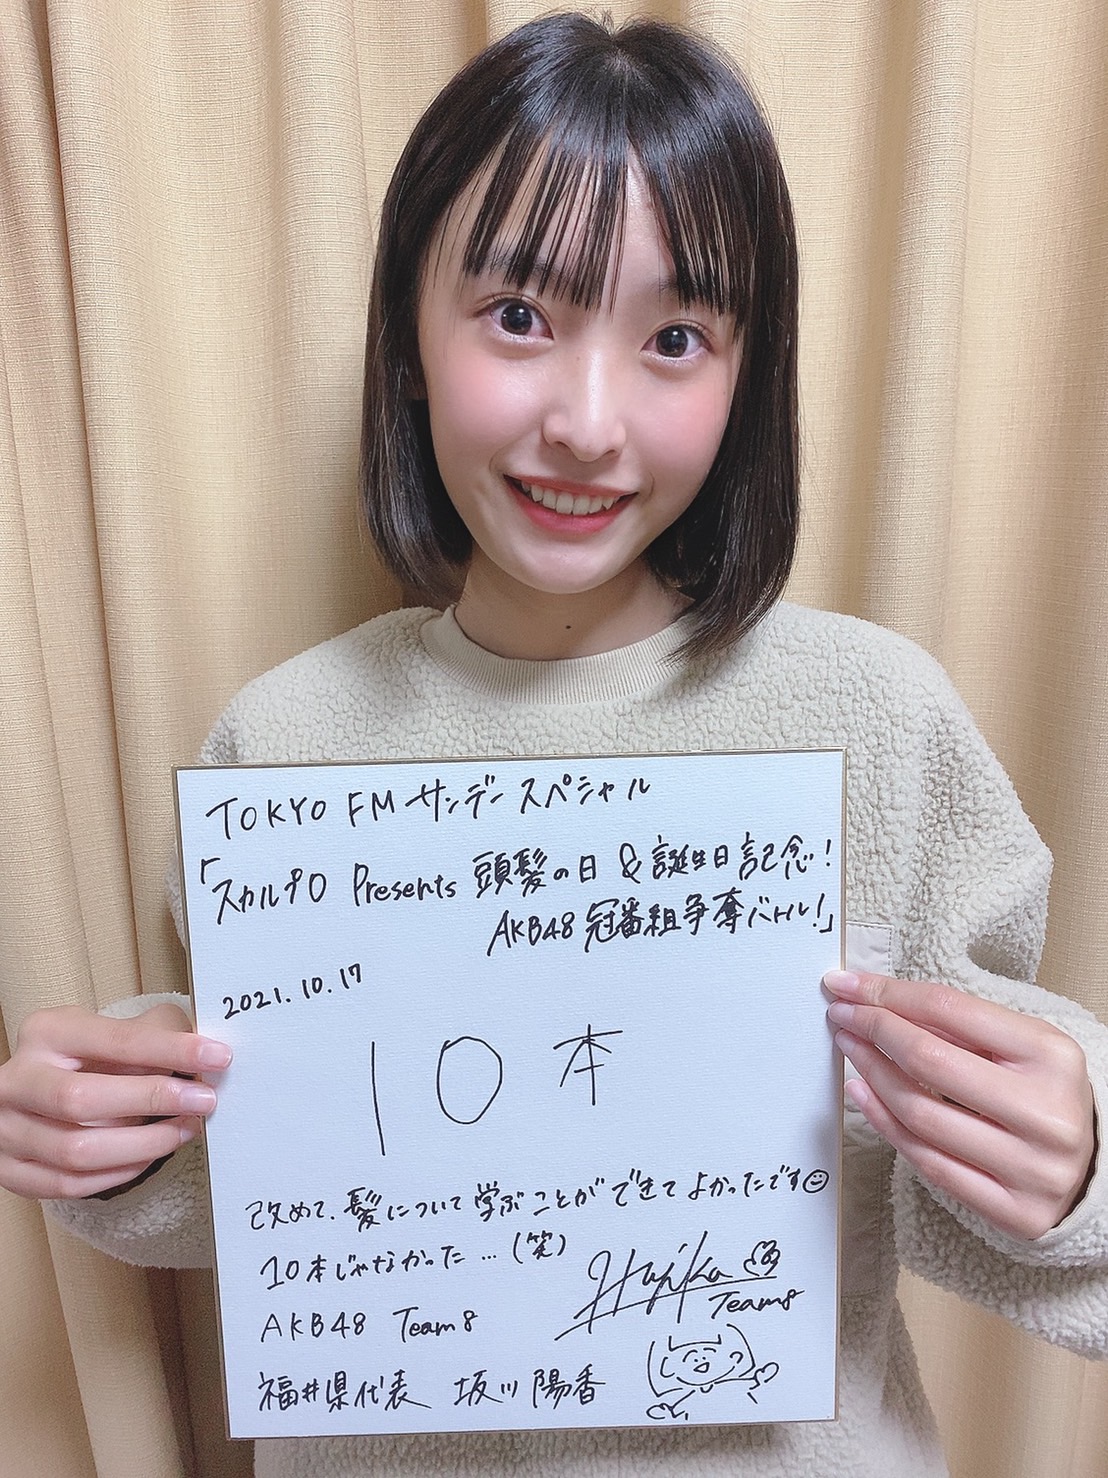 TOKYO FM サンデースペシャル
「スカルプD Presents 頭髪の日 & 誕生日記念!
AKB48 冠番組争奪バトル!」
2021.10.17
10本
改めて、髪について学ぶことができてよかったです☺
10本じゃなかった…(笑)
Hujika
Team8
AKB48 Team8
福井県代表 坂川陽香